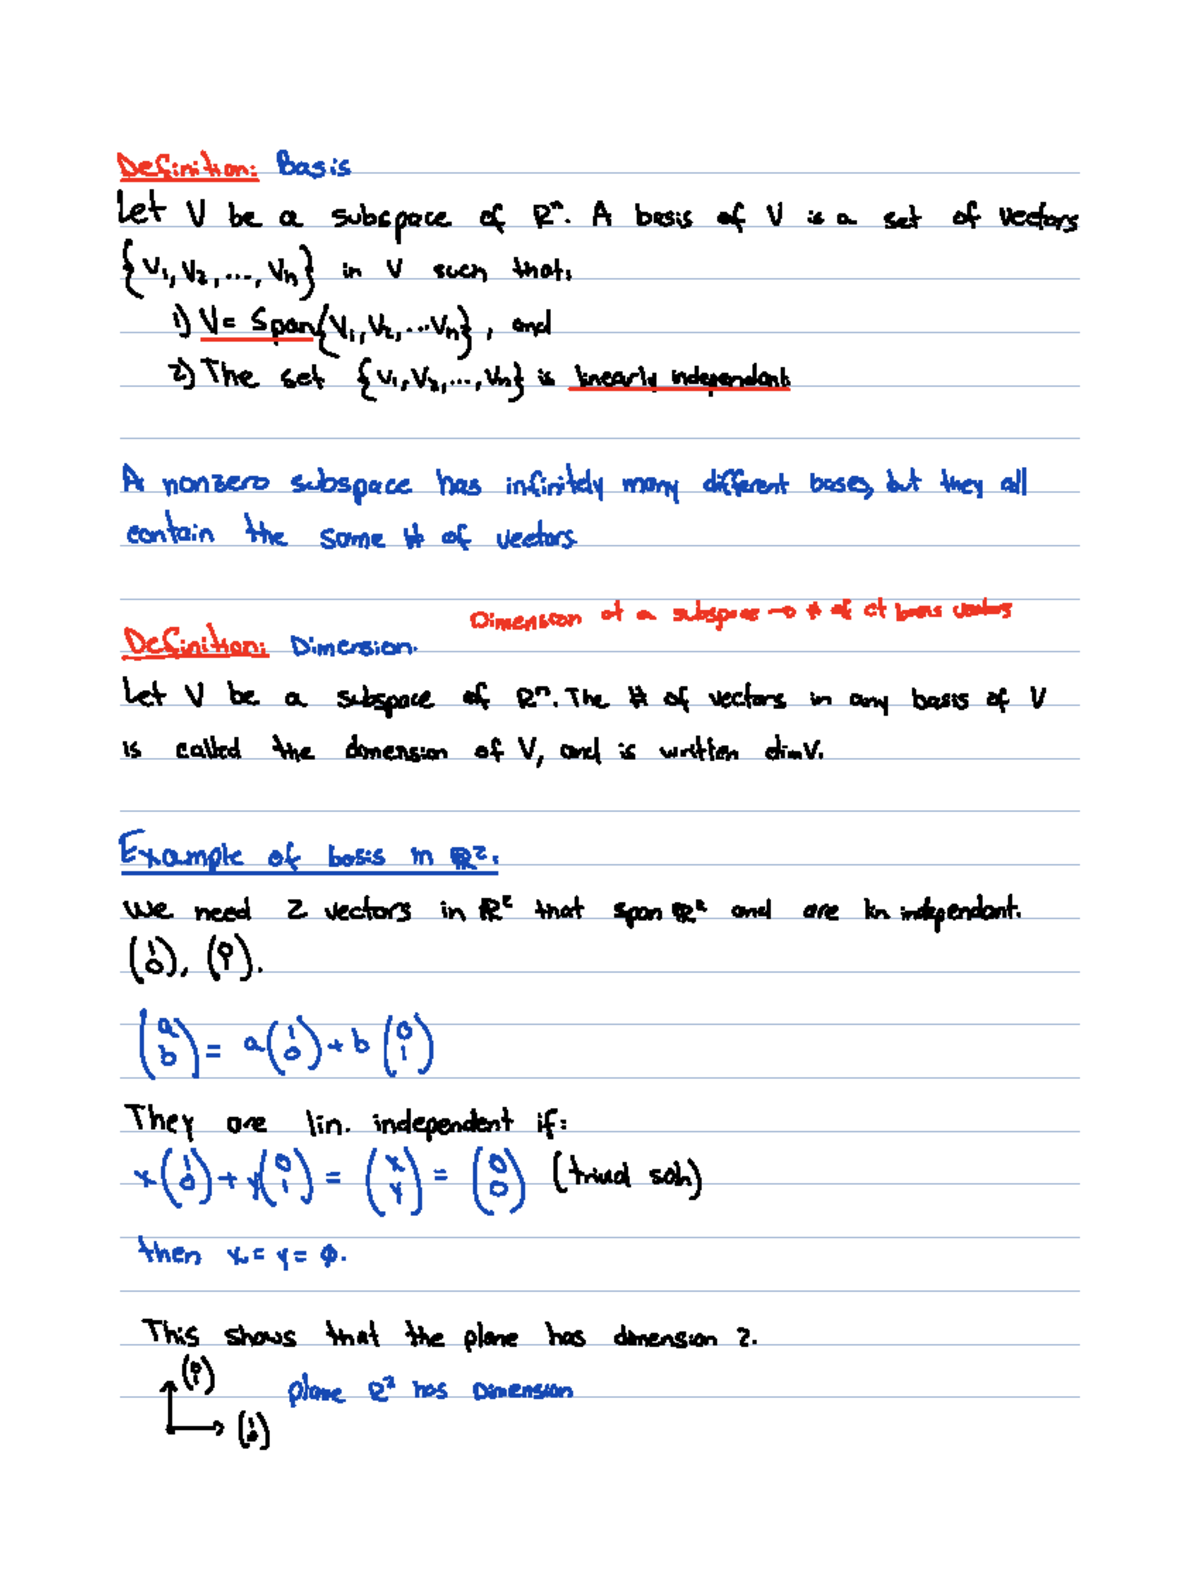 Definition: Basis
Let V be a subspace of ℝⁿ. A basis of V is a set of vectors
{V₁, V₂, ..., Vn} in V such that:
1) V= Span{V₁, V₂, ...Vn}, and
2) The set {V₁, V₂, ..., Vn} is linearly independant
A nonzero subspace has infinitely many different bases, but they all
contain the same # of vectors.
Dimension of a subspace → # of basis vectors
Definition: Dimension.
Let V be a subspace of ℝⁿ. The # of vectors in any basis of V
is called the dimension of V, and is written dimV.
Example of basis in ℝ²:
We need 2 vectors in ℝ² that span ℝ² and are lin independant.
(1 0), (0 1).
(a b) = a(1 0) + b(0 1)
They are lin. independent if:
x(1 0) + y(0 1) = (x y) = (0 0) (trivial soln)
then x = y = 0.
This shows that the plane has dimension 2.
(0 1)
plane ℝ² has Dimension
(1 0)